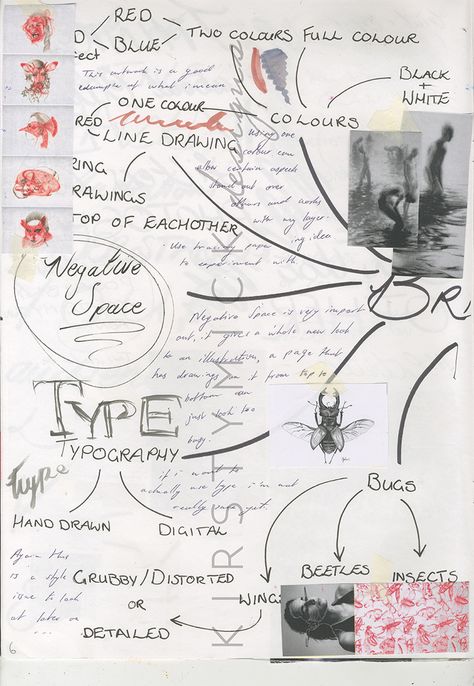 RED
BLUE
TWO COLOURS
FULL COLOUR
This artwork is a good
example of what i mean
BLACK
+
WHITE
ONE COLOUR
RED
LINE DRAWING
COLOURS
Using one
colour can
allow certain aspects
stand out over
others and works
with my layer-
ing idea
RAWINGS
TOP OF EACHOTHER
Use tracing paper
to experiment with.
Negative
Space
BRI
Negative Space is very import
ant, it gives a whole new look
to an illustration, a page that
has drawings on it from top to
bottom can
just look too
busy.
TYPE
TYPOGRAPHY
type
if i want to
actually use type i'm not
really sure yet.
HAND DRAWN
DIGITAL
BUGS
Again this
is a style
to look
at later on
...
GRUBBY/DISTORTED
OR
DETAILED
WINGS
BEETLES
INSECTS
KIRSTY
6